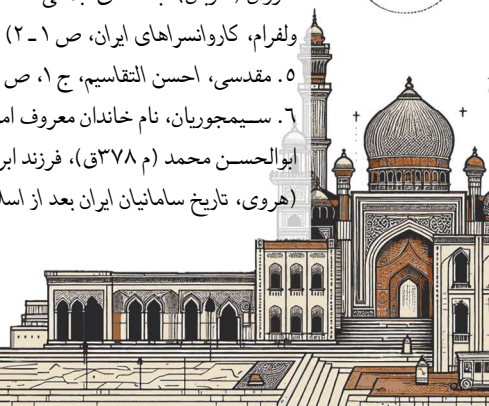 ولفرام، کاروانسراهای ایران، ص ۱ ـ ۲)
۵. مقدسی، احسن التقاسیم، ج ۱، ص
۶. سـیمجوریان، نام خاندان معروف
ابوالحسـن محمد (م ۳۷۸ق)، فرزند
(هروی، تاریخ سامانیان ایران بعد از